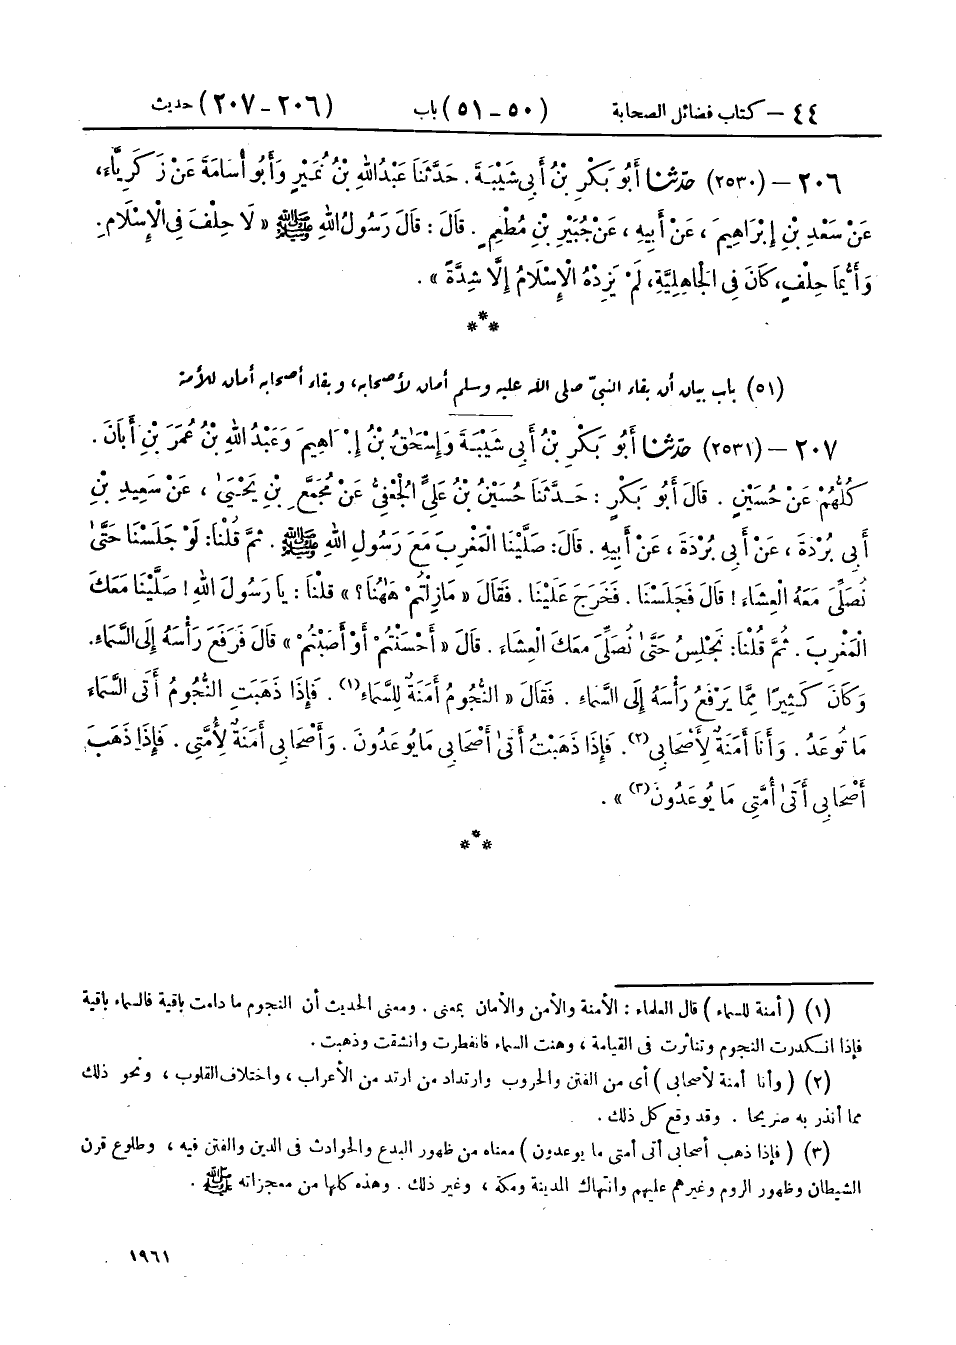 ٤٤ – كتاب فضائل الصحابة (٥٠ – ٥١) باب (٢٠٦ – ٢٠٧) حديث
٢٠٦ – (٢٥٣٠) حدّثنا أَبُو بَكْرِ بْنُ أَبِي شَيْبَةَ . حَدَّثَنَا عَبْدُ اللهِ بْنُ نُمَيْرٍ وَأَبُو أُسَامَةَ عَنْ زَكَرِيَّاءَ،
عَنْ سَعْدِ بْنِ إِبْرَاهِيمَ ، عَنْ أَبِيهِ ، عَنْ جُبَيْرِ بْنِ مُطْعِمٍ . قَالَ : قَالَ رَسُولُ اللهِ ﷺ « لَا حِلْفَ فِي الْإِسْلَامِ .
وَأَيُّمَا حِلْفٍ، كَانَ فِي الْجَاهِلِيَّةِ، لَمْ يَزِدْهُ الْإِسْلَامُ إِلَّا شِدَّةً » .
***
(٥١) باب بيان أن بقاء النبيّ صلى الله عليه وسلم أمان لأصحابه، وبقاء أصحابه أمان للأمة
٢٠٧ – (٢٥٣١) حدّثنا أَبُو بَكْرِ بْنُ أَبِي شَيْبَةَ وَإِسْحَٰقُ بْنُ إِبْرَاهِيمَ وَعَبْدُ اللهِ بْنُ عُمَرَ بْنِ أَبَانَ .
كُلُّهُمْ عَنْ حُسَيْنٍ . قَالَ أَبُو بَكْرٍ : حَدَّثَنَا حُسَيْنُ بْنُ عَلِيٍّ الْجُعْفِيُّ عَنْ مُجَمَّعِ بْنِ يَحْيَىٰ ، عَنْ سَعِيدِ بْنِ
أَبِي بُرْدَةَ ، عَنْ أَبِي بُرْدَةَ ، عَنْ أَبِيهِ . قَالَ: صَلَّيْنَا الْمَغْرِبَ مَعَ رَسُولِ اللهِ ﷺ . ثُمَّ قُلْنَا: لَوْ جَلَسْنَا حَتَّىٰ
نُصَلِّيَ مَعَهُ الْعِشَاءَ ! قَالَ فَجَلَسْنَا . فَخَرَجَ عَلَيْنَا . فَقَالَ « مَا زِلْتُمْ هٰهُنَا؟ » قلْنَا : يَا رَسُولَ اللهِ ! صَلَّيْنَا مَعَكَ
الْمَغْرِبَ . ثُمَّ قُلْنَا: نَجْلِسُ حَتَّىٰ نُصَلِّيَ مَعَكَ الْعِشَاءَ . قَالَ « أَحْسَنْتُمْ أَوْ أَصَبْتُمْ » قَالَ فَرَفَعَ رَأْسَهُ إِلَى السَّمَاءِ.
وَكَانَ كَثِيرًا مِمَّا يَرْفَعُ رَأْسَهُ إِلَى السَّمَاءِ . فَقَالَ « النُّجُومُ أَمَنَةٌ لِلسَّمَاءِ(١) . فَإِذَا ذَهَبَتِ النُّجُومُ أَتَى السَّمَاءَ
مَا تُوعَدُ . وَأَنَا أَمَنَةٌ لِأَصْحَابِي(٢). فَإِذَا ذَهَبْتُ أَتَىٰ أَصْحَابِي مَا يُوعَدُونَ . وَأَصْحَابِي أَمَنَةٌ لِأُمَّتِي . فَإِذَا ذَهَبَ
أَصْحَابِي أَتَىٰ أُمَّتِي مَا يُوعَدُونَ(٣) » .
***
(١) ( أمنة للسماء ) قال العلماء : الأمنة والأمن والأمان بمعنى . ومعنى الحديث أن النجوم ما دامت باقية فالسماء باقية
فإذا انكدرت النجوم وتناثرت فى القيامة ، وهنت السماء فانفطرت وانشقت وذهبت .
(٢) ( وأنا أمنة لأصحابى ) أى من الفتن والحروب وارتداد من ارتد من الأعراب ، واختلاف القلوب ، ونحو ذلك
مما أنذر به صريحا . وقد وقع كل ذلك .
(٣) ( فإذا ذهب أصحابى أتى أمتى ما يوعدون ) معناه من ظهور البدع والحوادث فى الدين والفتن فيه ، وطلوع قرن
الشيطان وظهور الروم وغيرهم عليهم وانتهاك المدينة ومكة ، وغير ذلك . وهذه كلها من معجزاته ﷺ .
١٩٦١